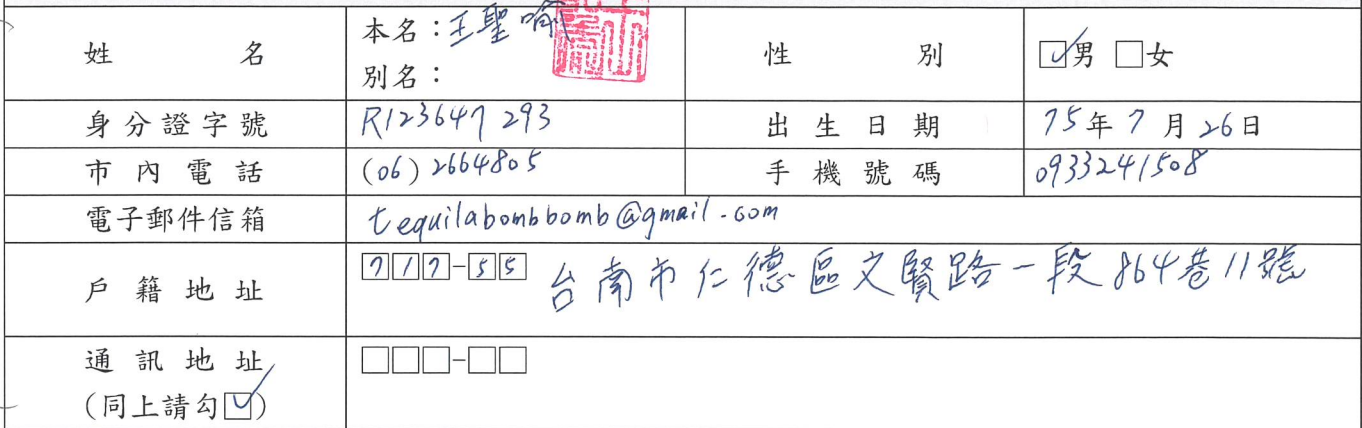 姓名
本名：王聖喻
別名：
性別
☑男 ☐女
身分證字號
R123647293
出生日期
75年7月26日
市內電話
(06)2664805
手機號碼
0933241508
電子郵件信箱
tequilabombbomb@gmail.com
戶籍地址
717-55 台南市仁德區文賢路一段864巷11號
通訊地址
(同上請勾☑)
☐☐☐-☐☐